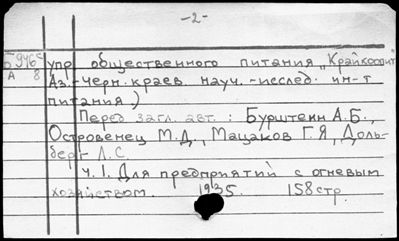 -2-
Б9465 упр. общественного питания „Крайкоопит"
А 8 Аз.-Черн. краев. науч.-исслед. ин-т
питания)
Перед загл. авт.: Бурштейн А.Б.,
Островенец М.Д., Мацаков Г.Я., Доль-
берг Л.С.
ч. 1. Для предприятий с огневым
хозяйством. 1935. 158 стр.